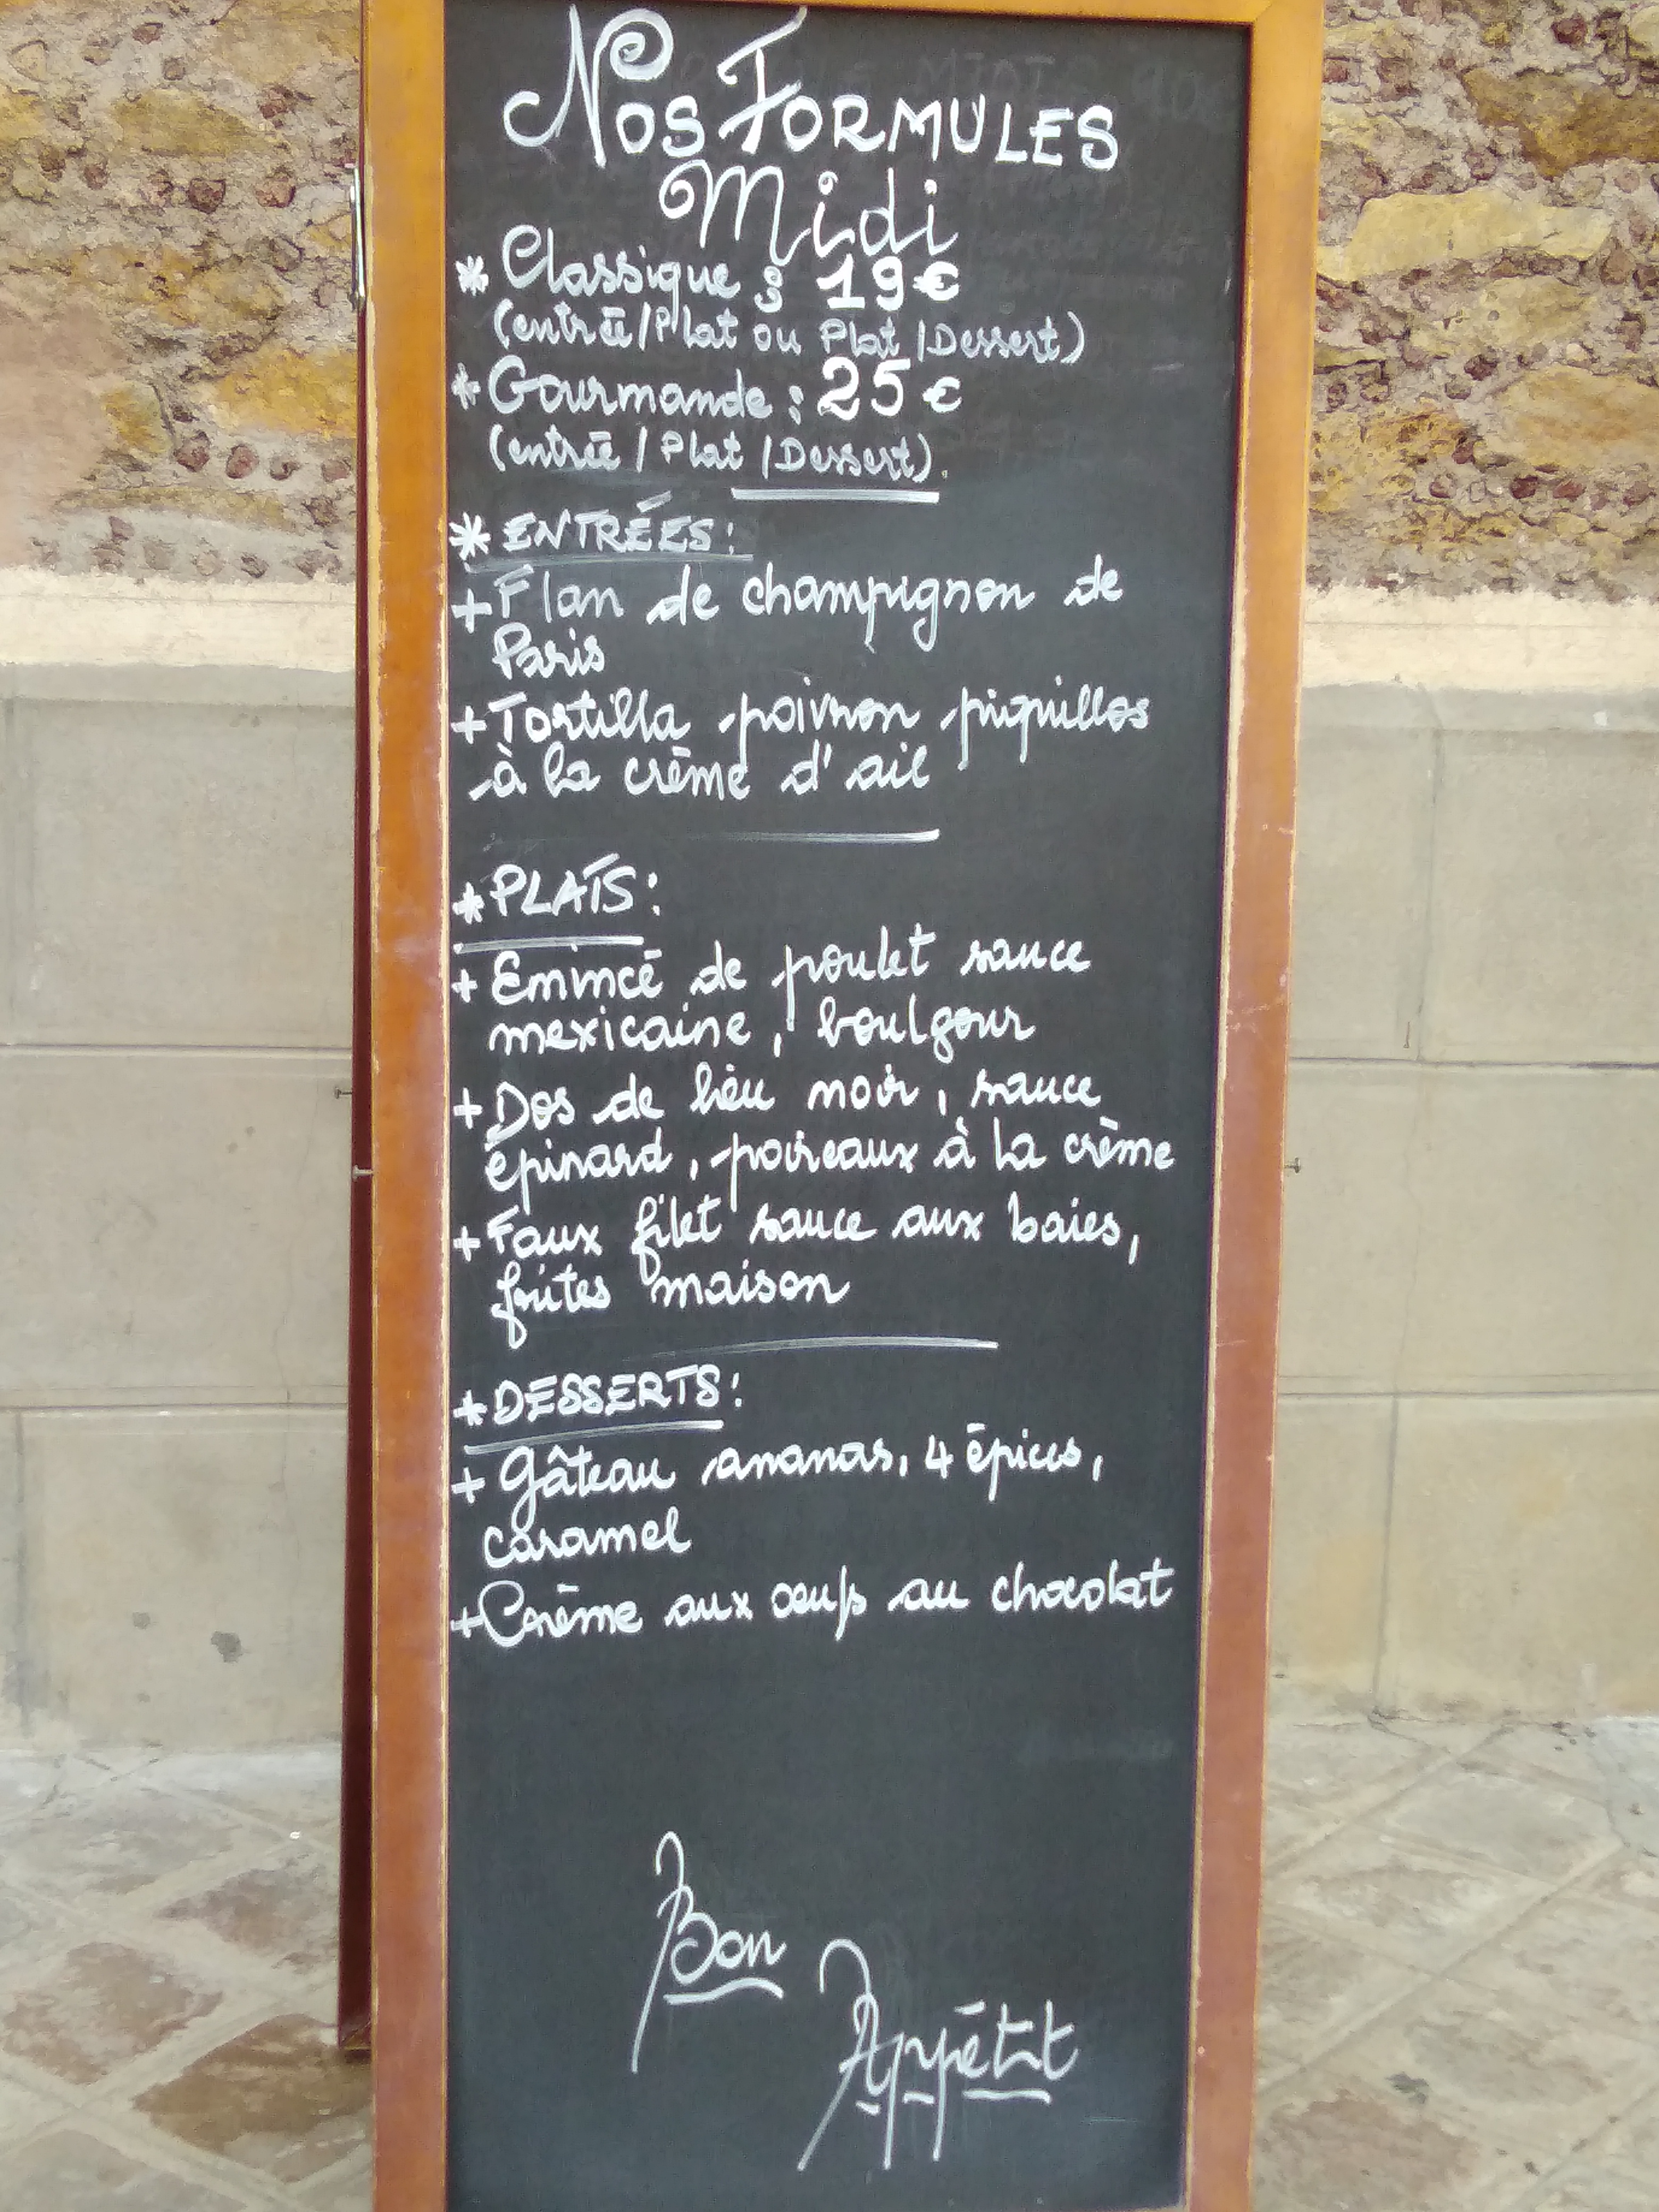 Nos Formules
Midi
* Classique : 19€
(entrée/Plat ou Plat/Dessert)
* Gourmande : 25€
(entrée/Plat/Dessert).
* ENTRÉES:
+ Flan de champignon de
Paris
+ Tortilla poivron piquillos
à la crème d'ail
* PLATS:
+ Emincé de poulet sauce
mexicaine, boulgour
+ Dos de lieu noir, sauce
épinard, poireaux à la crème
+ Faux filet sauce aux baies,
frites maison
* DESSERTS:
+ Gâteau ananas, 4 épices,
caramel
+ Crème aux œufs au chocolat
Bon
Appétit